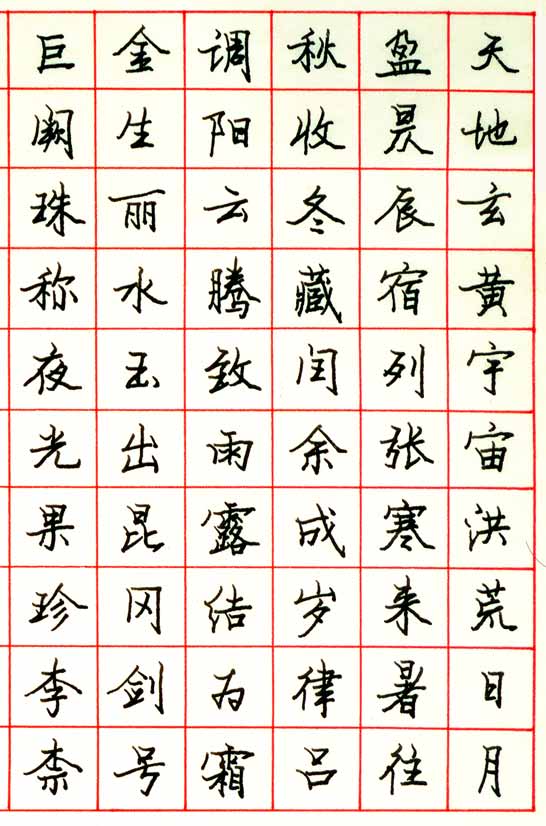 天地玄黄宇宙洪荒日月
盈昃辰宿列张寒来暑往
秋收冬藏闰余成岁律吕
调阳云腾致雨露结为霜
金生丽水玉出昆冈剑号
巨阙珠称夜光果珍李柰